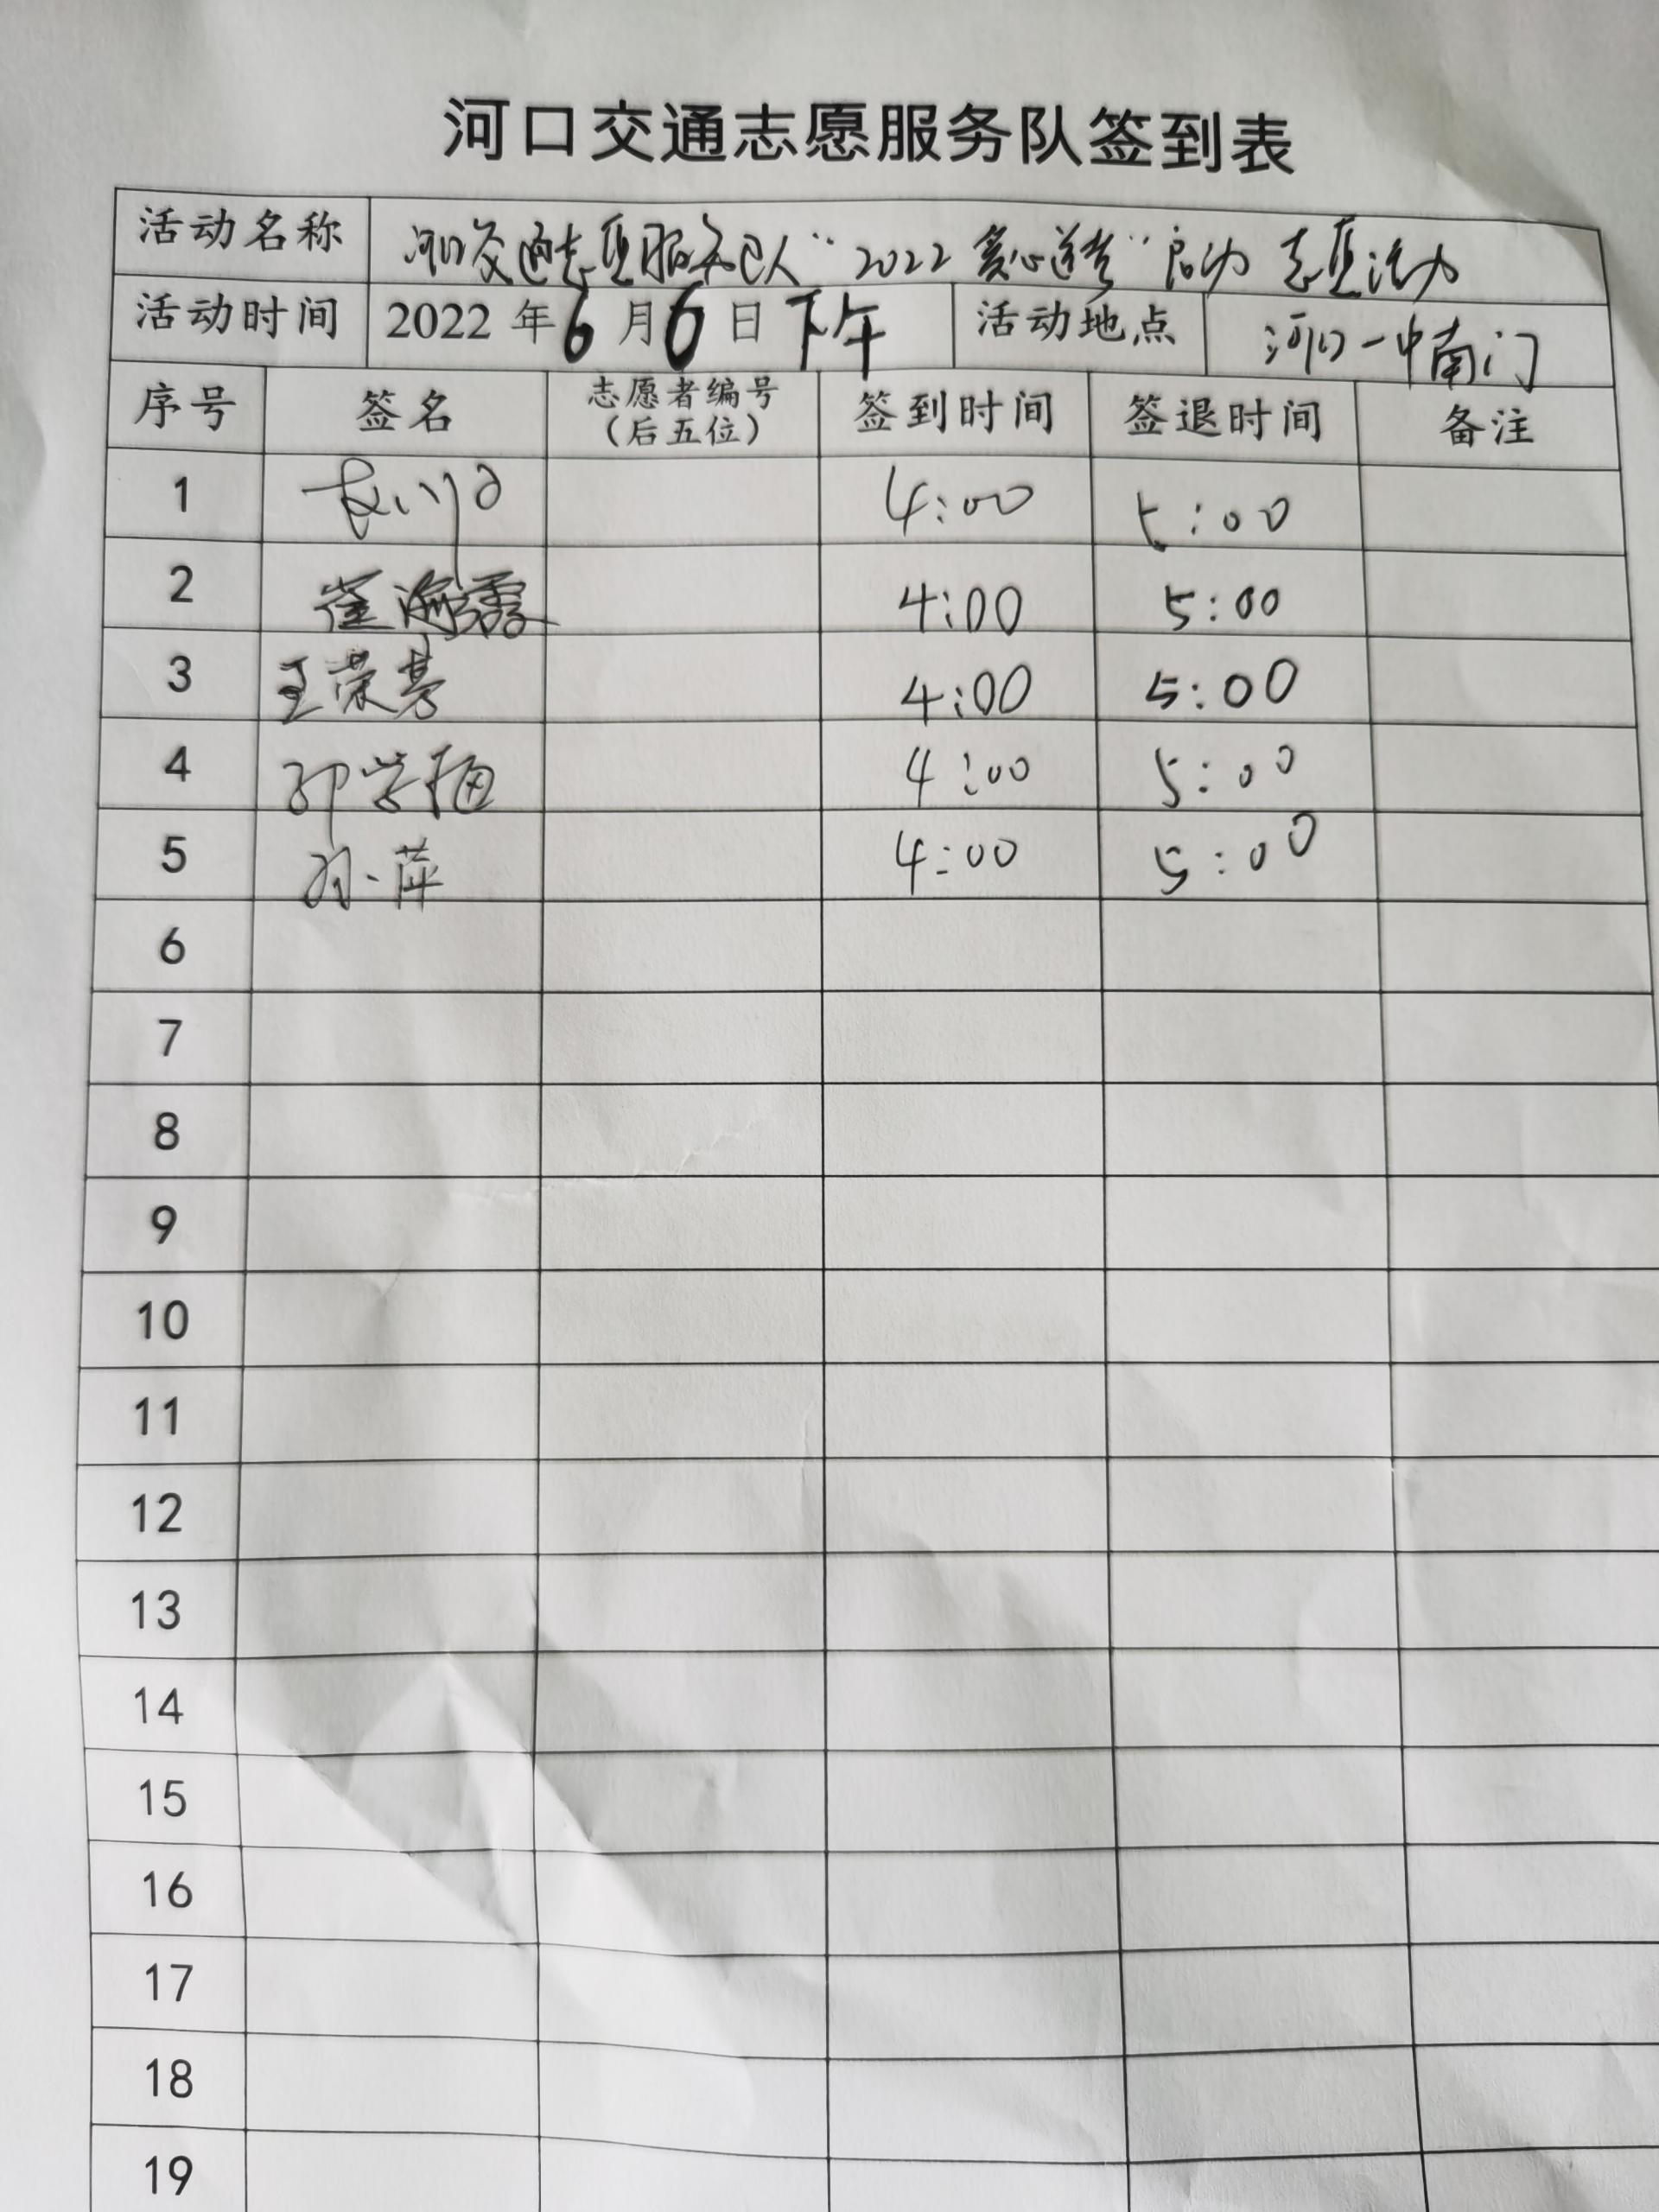 河口交通志愿服务队签到表
活动名称 河口交通志愿服务队“2022爱心送考”启动 志愿活动
活动时间 2022年6月6日下午 活动地点 河口一中南门
序号 签名 志愿者编号（后五位） 签到时间 签退时间 备注
1 4:00 5:00
2 崔海霞 4:00 5:00
3 王荣芳 4:00 5:00
4 4:00 5:00
5 孙萍 4:00 5:00
6
7
8
9
10
11
12
13
14
15
16
17
18
19